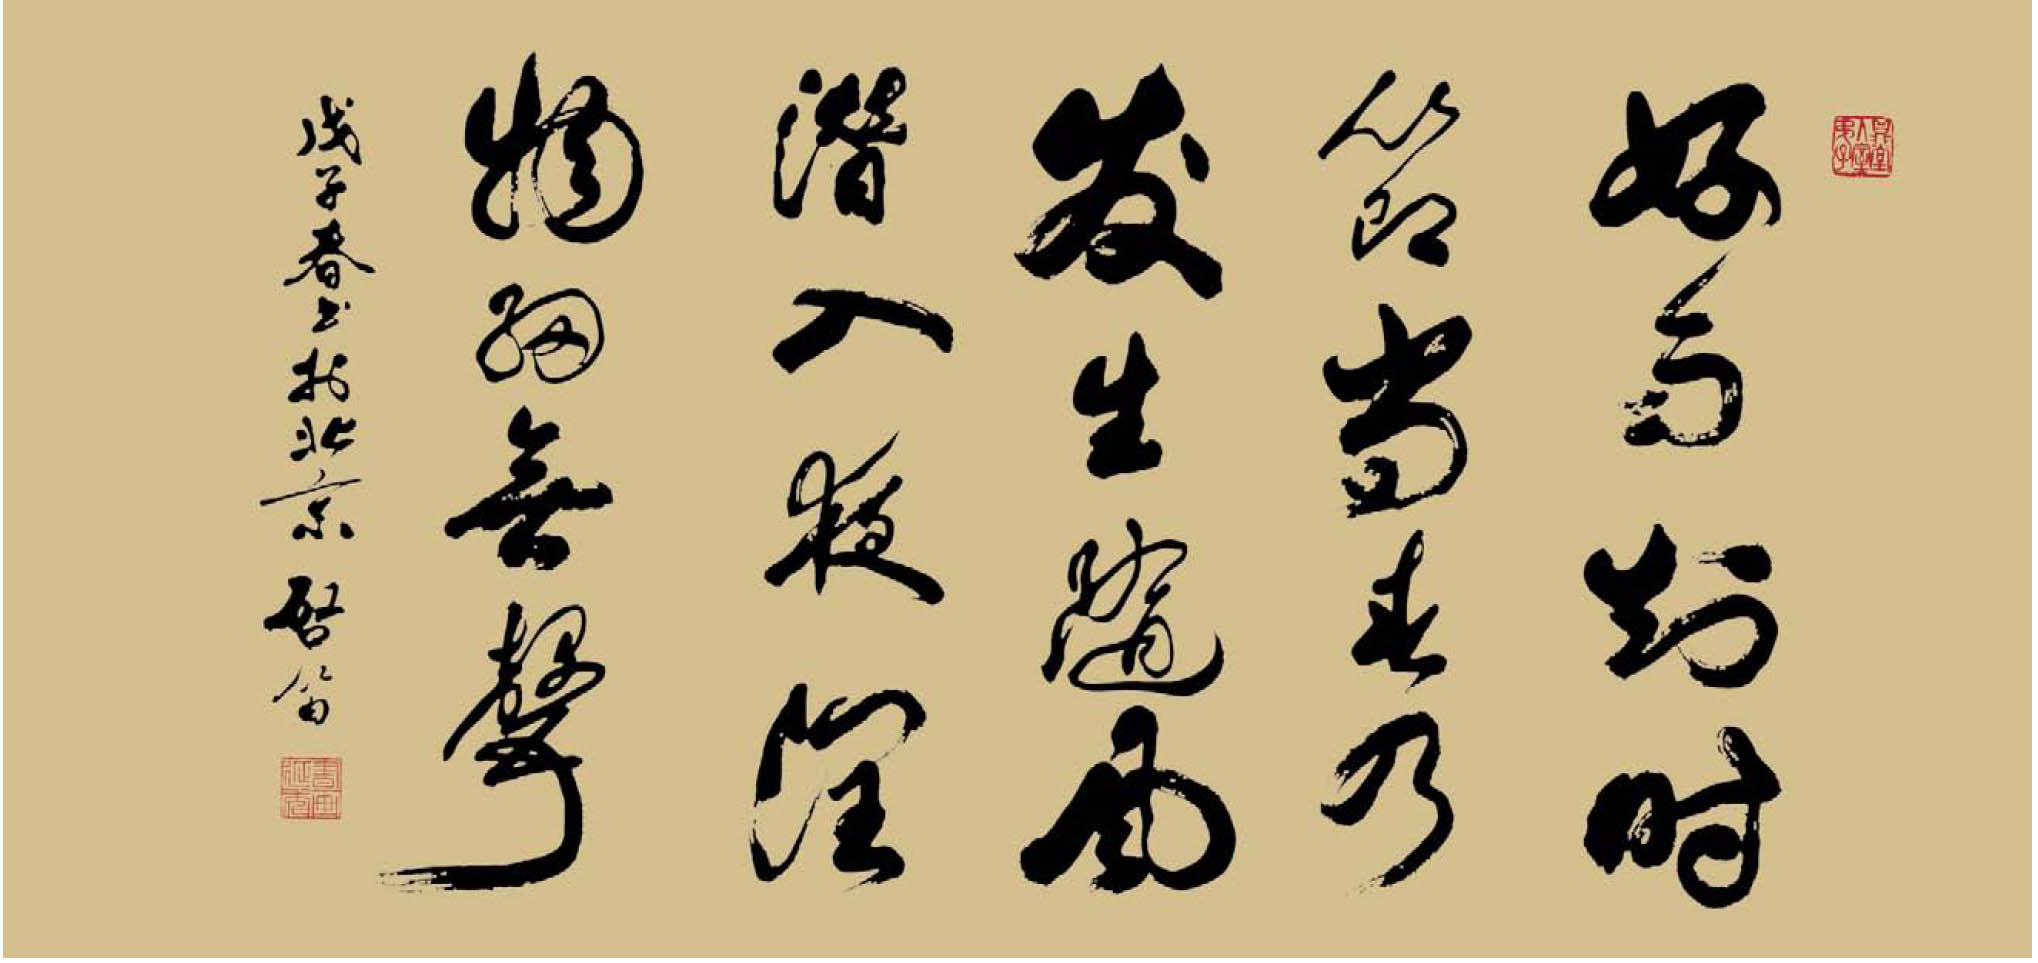 好雨知时
节当春乃
发生随风
潜入夜润
物细無聲
戊子春书於北京 启笛